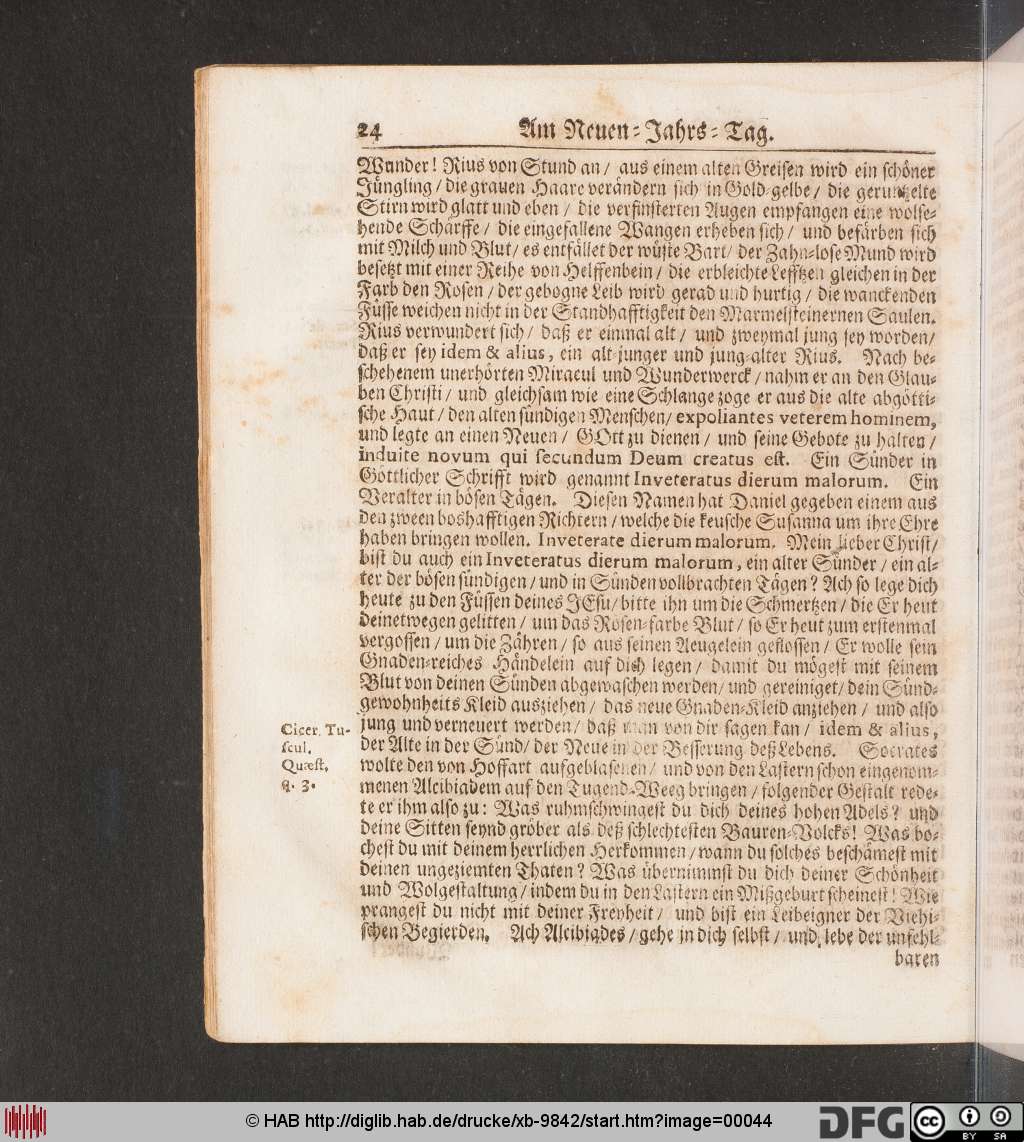 24 Am Neuen-Jahrs-Tag.
Wunder! Rius von Stund an / aus einem alten Greisen wird ein schöner
Jüngling / die grauen Haare verändern sich in Gold-gelbe / die geruntzelte
Stirn wird glatt und eben / die verfinsterten Augen empfangen eine wolse-
hende Schärffe / die eingefallene Wangen erheben sich / und befärben sich
mit Milch und Blut / es entfället der wüste Bart / der Zahn-lose Mund wird
besetzt mit einer Reihe von Helffenbein / die erbleichte Lefftzen gleichen in der
Farb den Rosen / der gebogne Leib wird gerad und hurtig / die wanckenden
Füsse weichen nicht in der Standhafftigkeit den Marmelsteinernen Saulen.
Rius verwundert sich / daß er einmal alt / und zweymal jung sey worden /
daß er sey idem & alius, ein alt-junger und jung-alter Rius. Nach be-
schehenem unerhörten Miracul und Wunderwerck / nahm er an den Glau-
ben Christi / und gleichsam wie eine Schlange zoge er aus die alte abgötti-
sche Haut / den alten sündigen Menschen / expoliantes veterem hominem,
und legte an einen Neuen / GOtt zu dienen / und seine Gebote zu halten /
induite novum qui secundum Deum creatus est. Ein Sünder in
Göttlicher Schrifft wird genannt Inveteratus dierum malorum. Ein
Veralter in bösen Tägen. Diesen Namen hat Daniel gegeben einem aus
den zween boshafftigen Richtern / welche die keusche Susanna um ihre Ehre
haben bringen wollen. Inveterate dierum malorum. Mein lieber Christ /
bist du auch ein Inveteratus dierum malorum, ein alter Sünder / ein al-
ter der bösen sündigen / und in Sünden vollbrachten Tägen? Ach so lege dich
heute zu den Füssen deines JEsu / bitte ihn um die Schmertzen / die Er heut
deinetwegen gelitten / um das Rosen-farbe Blut / so Er heut zum erstenmal
vergossen / um die Zähren / so aus seinen Aeugelein geflossen / Er wolle sein
Gnaden-reiches Händelein auf dich legen / damit du mögest mit seinem
Blut von deinen Sünden abgewaschen werden / und gereiniget / dein Sünd-
gewohnheits Kleid ausziehen / das neue Gnaden-Kleid anziehen / und also
jung und verneuert werden / daß man von dir sagen kan / idem & alius,
der Alte in der Sünd / der Neue in der Besserung deß Lebens. Socrates
wolte den von Hoffart aufgeblasenen / und von den Lastern schon eingenom-
menen Alcibiadem auf den Tugend-Weeg bringen / folgender Gestalt rede-
te er ihm also zu: Was ruhmschwingest du dich deines hohen Adels? und
deine Sitten seynd gröber als deß schlechtesten Bauren-Volcks! Was bo-
chest du mit deinem herrlichen Herkommen / wann du solches beschämest mit
deinen ungeziemten Thaten? Was übernimmst du dich deiner Schönheit
und Wolgestaltung / indem du in den Lastern ein Mißgeburt scheinest! Wie
prangest du nicht mit deiner Freyheit / und bist ein Leibeigner der Viehi-
schen Begierden. Ach Alcibiades / gehe in dich selbst / und lebe der unfehl-
baren
Cicer. Tu-
scul.
Quæst.
q. 3.
© HAB http://diglib.hab.de/drucke/xb-9842/start.htm?image=00044
DFG
cc
BY SA